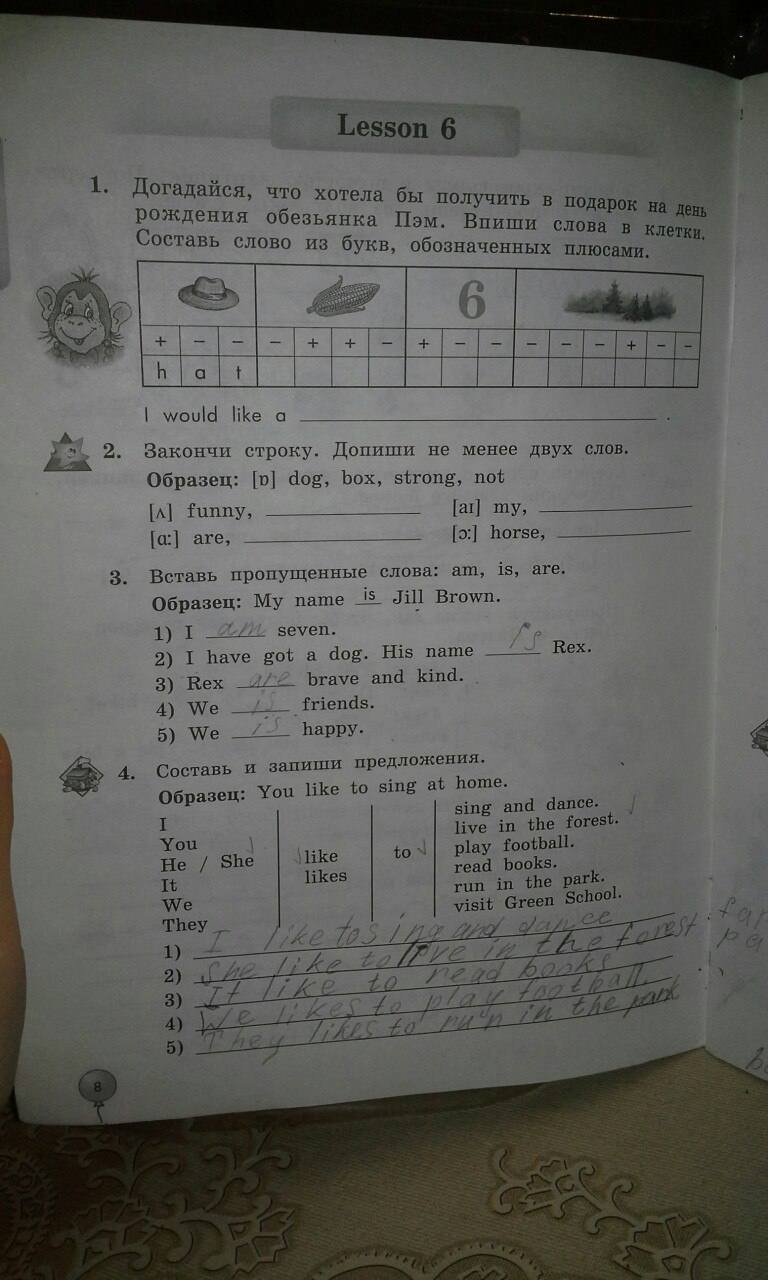 Lesson 6
1. Догадайся, что хотела бы получить в подарок на день
рождения обезьянка Пэм. Впиши слова в клетки.
Составь слово из букв, обозначенных плюсами.
6
+ − − − + + − + − − − − − + − −
h a t
I would like a ____________ .
2. Закончи строку. Допиши не менее двух слов.
Образец: [ɒ] dog, box, strong, not
[ʌ] funny, ____________ [aɪ] my, ____________
[ɑ:] are, ____________ [ɔ:] horse, ____________
3. Вставь пропущенные слова: am, is, are.
Образец: My name is Jill Brown.
1) I am seven.
2) I have got a dog. His name is Rex.
3) Rex are brave and kind.
4) We is friends.
5) We is happy.
4. Составь и запиши предложения.
Образец: You like to sing at home.
I
You
He / She
It
We
They
like
likes
to
sing and dance.
live in the forest.
play football.
read books.
run in the park.
visit Green School.
1) I like to sing and dance
2) She like to live in the forest
3) It like to read books
4) We likes to play football.
5) They likes to run in the park
8